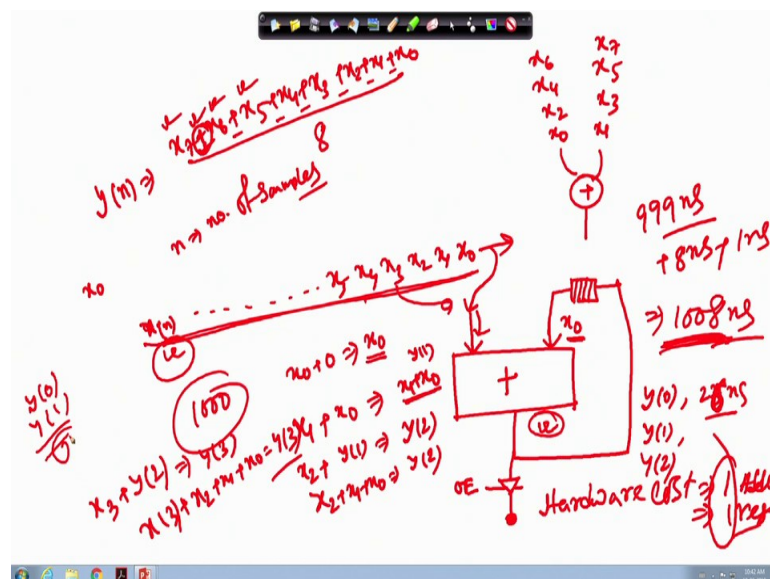 y(n) ⇒ x7 + x6 + x5 + x4 + x3 + x2 + x1 + x0
8
n ⇒ no. of samples
x6 x7
x4 x5
x2 x3
x0 x1
+
999 ns
+ 8 ns + 1 ns
⇒ 1008 ns
x0
x(n) ........ x5 x4 x3 x2 x1 x0
1000
x0 + 0 ⇒ x0
x0
+
y(1)
x1 + x0 ⇒ x1+x0
x2 + y(1) ⇒ y(2)
x2+x1+x0 ⇒ y(2)
x3 + y(2) ⇒ y(3)
x(3) + x2 + x1 + x0 = y(3)
y(0)
y(1)
y(0), ns
y(1),
y(2)
OE
Hardware Cost ⇒ 1 Adde
⇒ 1 reg
10:42 AM